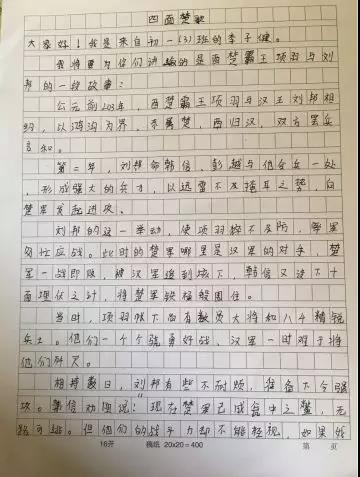 四面楚歌
大家好！我是来自初一（3）班的李子健。
我将要为你们讲述的是西楚霸王项羽与刘
邦的一段故事：
公元前203年，西楚霸王项羽与汉王刘邦相
约，以鸿沟为界，东属楚，西归汉，双方罢兵
言和。
第二年，刘邦命韩信、彭越与他合兵一处
，形成强大的兵力，以迅雷不及掩耳之势，向
楚军发起进攻。
刘邦的这一举动，使项羽猝不及防，率军
匆忙应战。此时的楚军哪里是汉军的对手，楚
军一战即败，被汉军追到垓下，韩信又设下十
面埋伏之计，将楚军铁桶般围住。
当时，项羽帐下尚有数员大将和八千精锐
兵士。他们一个个骁勇好战，汉军一时难于将
他们歼灭。
相持数日，刘邦有些不耐烦，准备下令强
攻。韩信劝阻说：“现在楚军已成瓮中之鳖，无
路可逃。但他们的战斗力却不能轻视，如果我
16开 稿纸 20x20=400 第 页